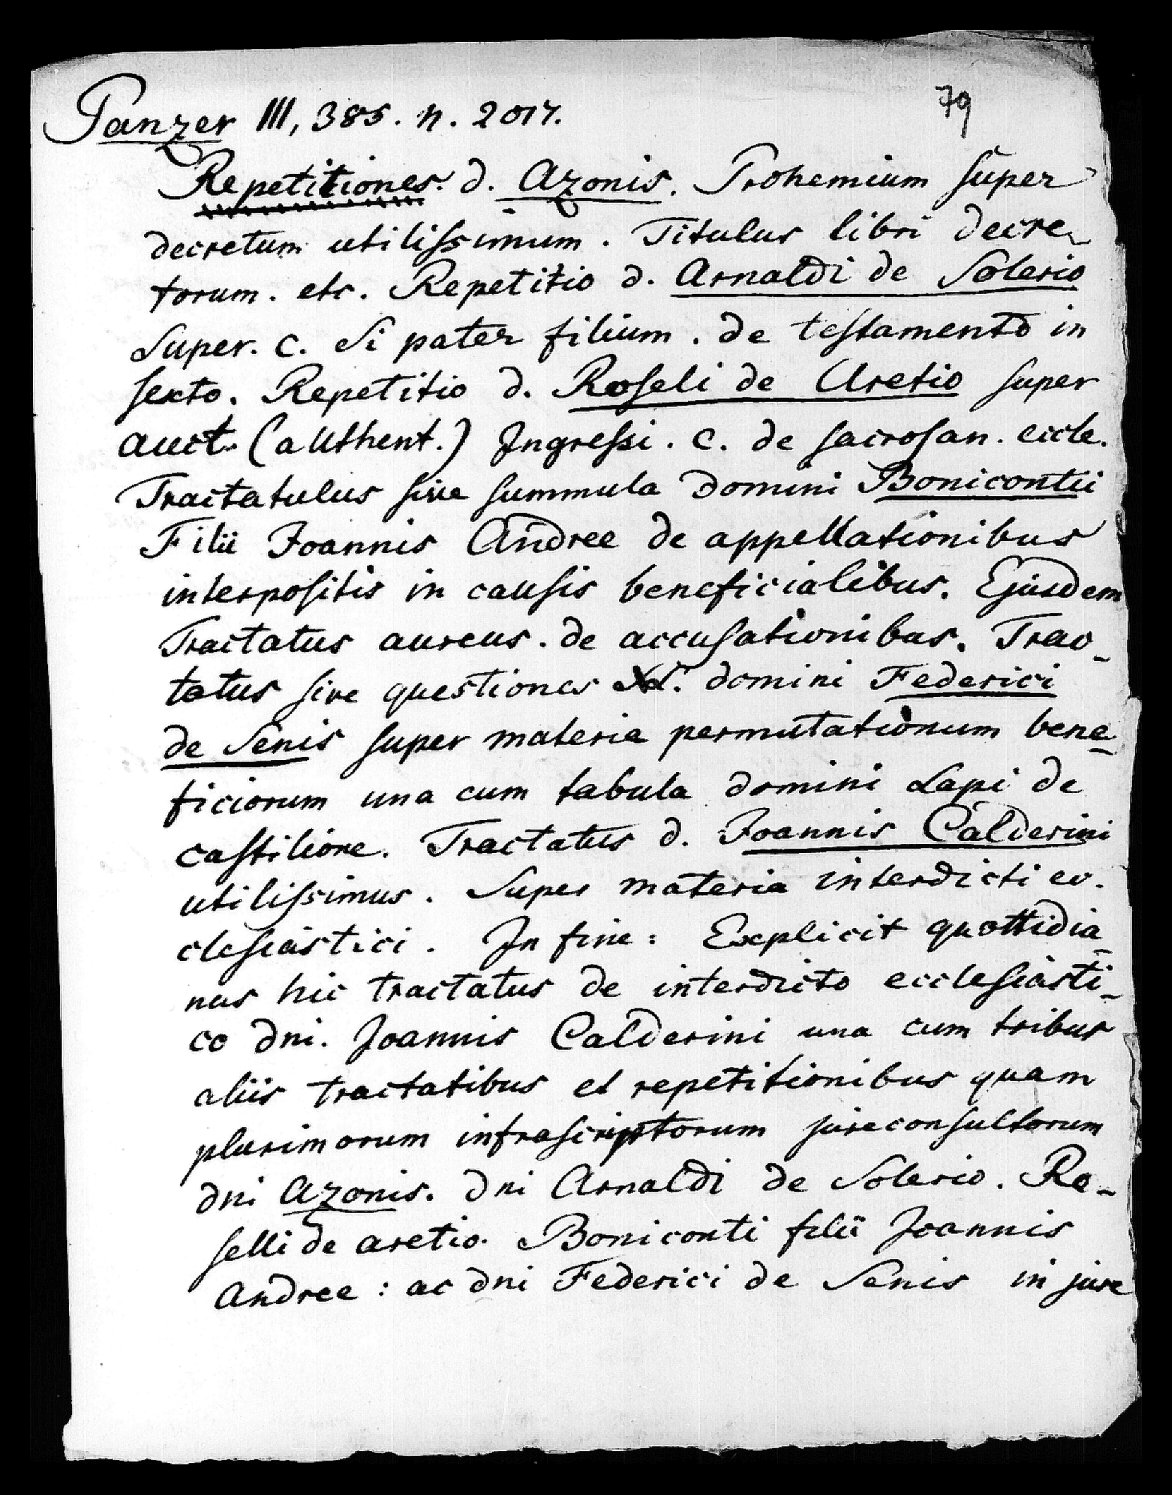 79
Panzer III, 385. n. 2017.
Repetitiones. d. Azonis. Prohemium super
decretum utilissimum. Titulus libri decre-
torum. etc. Repetitio d. Arnaldi de Solerio
Super. c. Si pater filium. de testamento in
sexto. Repetitio d. Roseli de Aretio super
auct. (authent.) Ingressi. c. de sacrosan. eccle.
Tractatulus sive summula domini Bonicontii
Filii Joannis Andree de appellationibus
interpositis in causis beneficialibus. Ejusdem
Tractatus aureus. de accusationibus. Trac-
tatus sive questiones domini Federici
de Senis super materia permutationum bene-
ficiorum una cum tabula domini Lapi de
castilione. Tractatus d. Joannis Calderini
utilissimus. Super materia interdicti ec-
clesiastici. In fine: Explicit quottidia-
nus hic tractatus de interdicto ecclesiasti-
co dni. Joannis Calderini una cum tribus
aliis tractatibus et repetitionibus quam
plurimorum infrascriptorum jureconsultorum
dni Azonis. dni Arnaldi de Solerio. Ro-
selli de aretio. Boniconti filii Joannis
Andree: ac dni Federici de Senis in jure